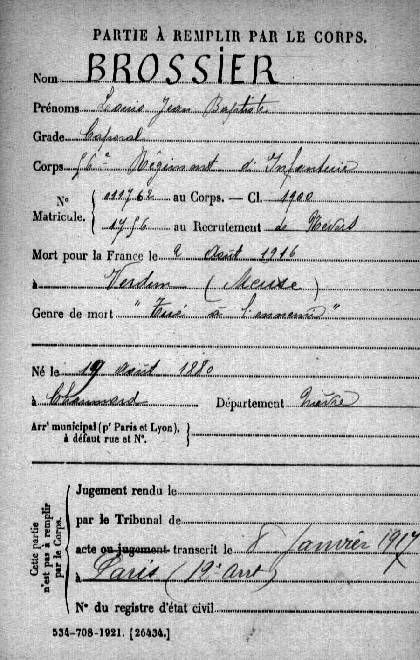 PARTIE À REMPLIR PAR LE CORPS.
Nom BROSSIER
Prénoms Louis Jean Baptiste
Grade Caporal
Corps 56e Régiment d'Infanterie
N° Matricule. { 011762 au Corps. — Cl. 1900
1756 au Recrutement de Nevers
Mort pour la France le 2 Août 1916
à Verdun (Meuse)
Genre de mort "Tué à l'ennemi"
Né le 19 Août 1880
à Chaumard Département Nièvre
Arrt municipal (pr Paris et Lyon), à défaut rue et N°. }
Cette partie n'est pas à remplir par le Corps.
Jugement rendu le
par le Tribunal de
acte ou jugement transcrit le 8 Janvier 1917
à Paris (19e Arrt)
N° du registre d'état civil
534-708-1921. [26434.]